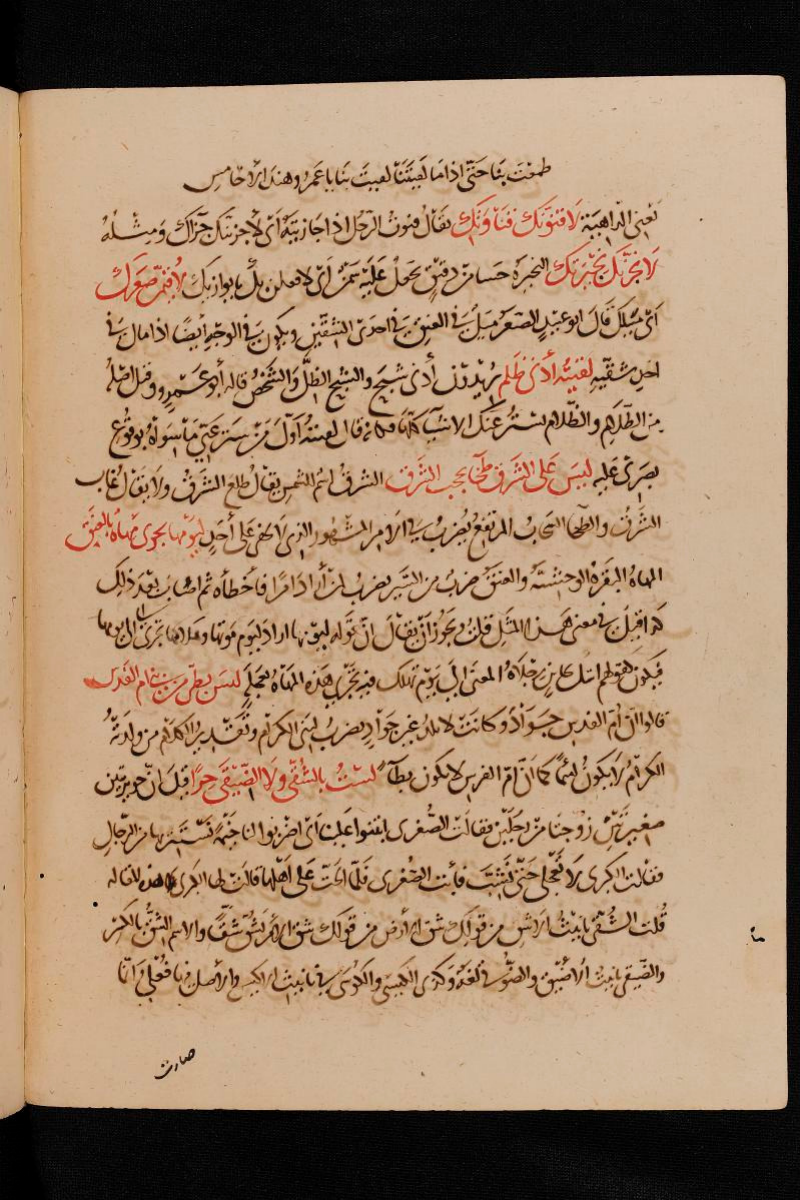 طمعت بنا حتى اذا ما لقيتنا لقيت بنا يا عمرو هند الاحامس
يعني الداهية لاقنونك قناوتك يقال قنوت الرجل اذا جازيته اى لاجزينك جزاك ومثله
لانجرنك نجيرتك النجيرة حسا من دقيق يجعل عليه سمن اى لافعلن بك ما يوازيك لاقيمن صعرك
اى ميلك قال ابو عبيد الصعر ميل في العنق في احدى الشقين ويكون في الوجه ايضا اذا مال في
احد شقيه لقيته أدنى ظلم يريدون أدنى شبح والشبح الظل والشخص قاله أبو عمرو وقيل اصله
من الظلام والظلام يستر عنك الاشيا كلها فكانه قال لقيته اول من ستر عني ما سواه بوقوع
بصرى عليه ليس على الشرق طخا يحجب الشرق الشرق اسم الشمس يقال طلع الشرق ولا يقال غاب
الشرق والطخا السحاب المرتفع يضرب في الامر المشهور الذى لا يخفى على أحد ليومها تجرى مهاة بالعنق
المهاة البقرة الوحشية والعنق ضرب من السير يضرب لمن أراد امرا فأخطأه ثم اصاب بعد ذلك
كذا قيل في معنى هذا المثل قلت ويجوز أن يقال ان قوله ليومها اراد ليوم موتها وهلاكها تجرى الى يومها
فيكون كقولهم اتتك بحاين رجلاه المعنى الى يوم تهلك فيه تجرى هذه المهاة بعجلة ليس بطى من بني ام الفرس
قالوا ان أم الفرس جواد وكانت لا تلد غير جواد يضرب لبني الكرام وتقدير الكلام من ولدته
الكرام لا يكون لئيما كما ان ام الفرس لا يكون بطأ لست بالشقى ولا الضيقى حرا قيل ان جويريتين
صغيرتين زوجتا من رجلين فقالت الصغرى ابتنوا علينا اى اضربوا لنا خيمة نستتر بها من الرجال
فقالت الكبرى لا تعجلى حتى نشب فأبت الصغرى فلما الحت على اهلها قالت لها الكبرى هذه المقالة
قلت الشقى تانيث الاشق من قولك شق الارض من قولك شق الامر يشق شقا والاسم الشق بالكسر
والضيقى تانيث الاضيق والضوقى لغة وكذى الكيسى والكوسى في تانيث الاكيس والاصل فيها فعلى وانما
صارت